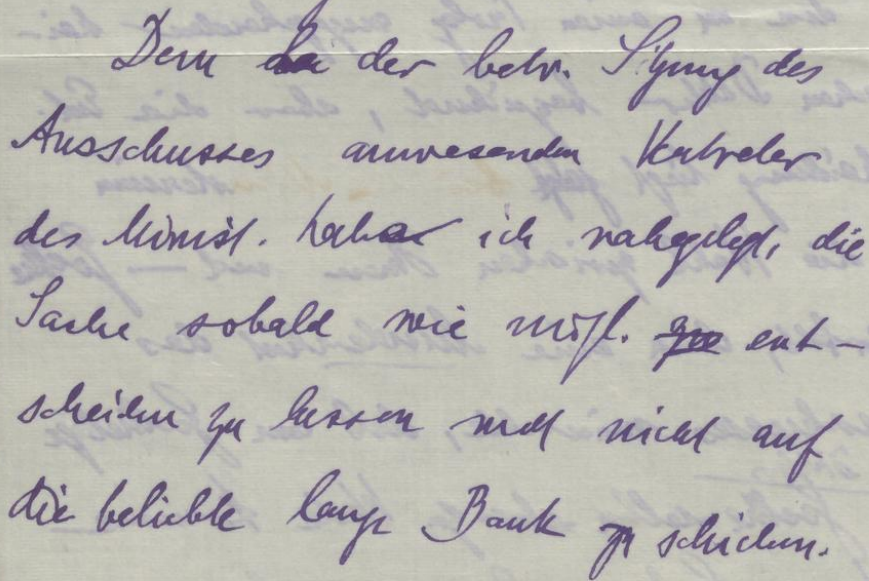 Dem bei der betr. Sitzung des
Ausschusses anwesenden Vertreter
des Minist. habe ich nahegelegt, die
Sache sobald wie mögl. zu ent-
scheiden zu lassen und nicht auf
die beliebte lange Bank zu schieben.